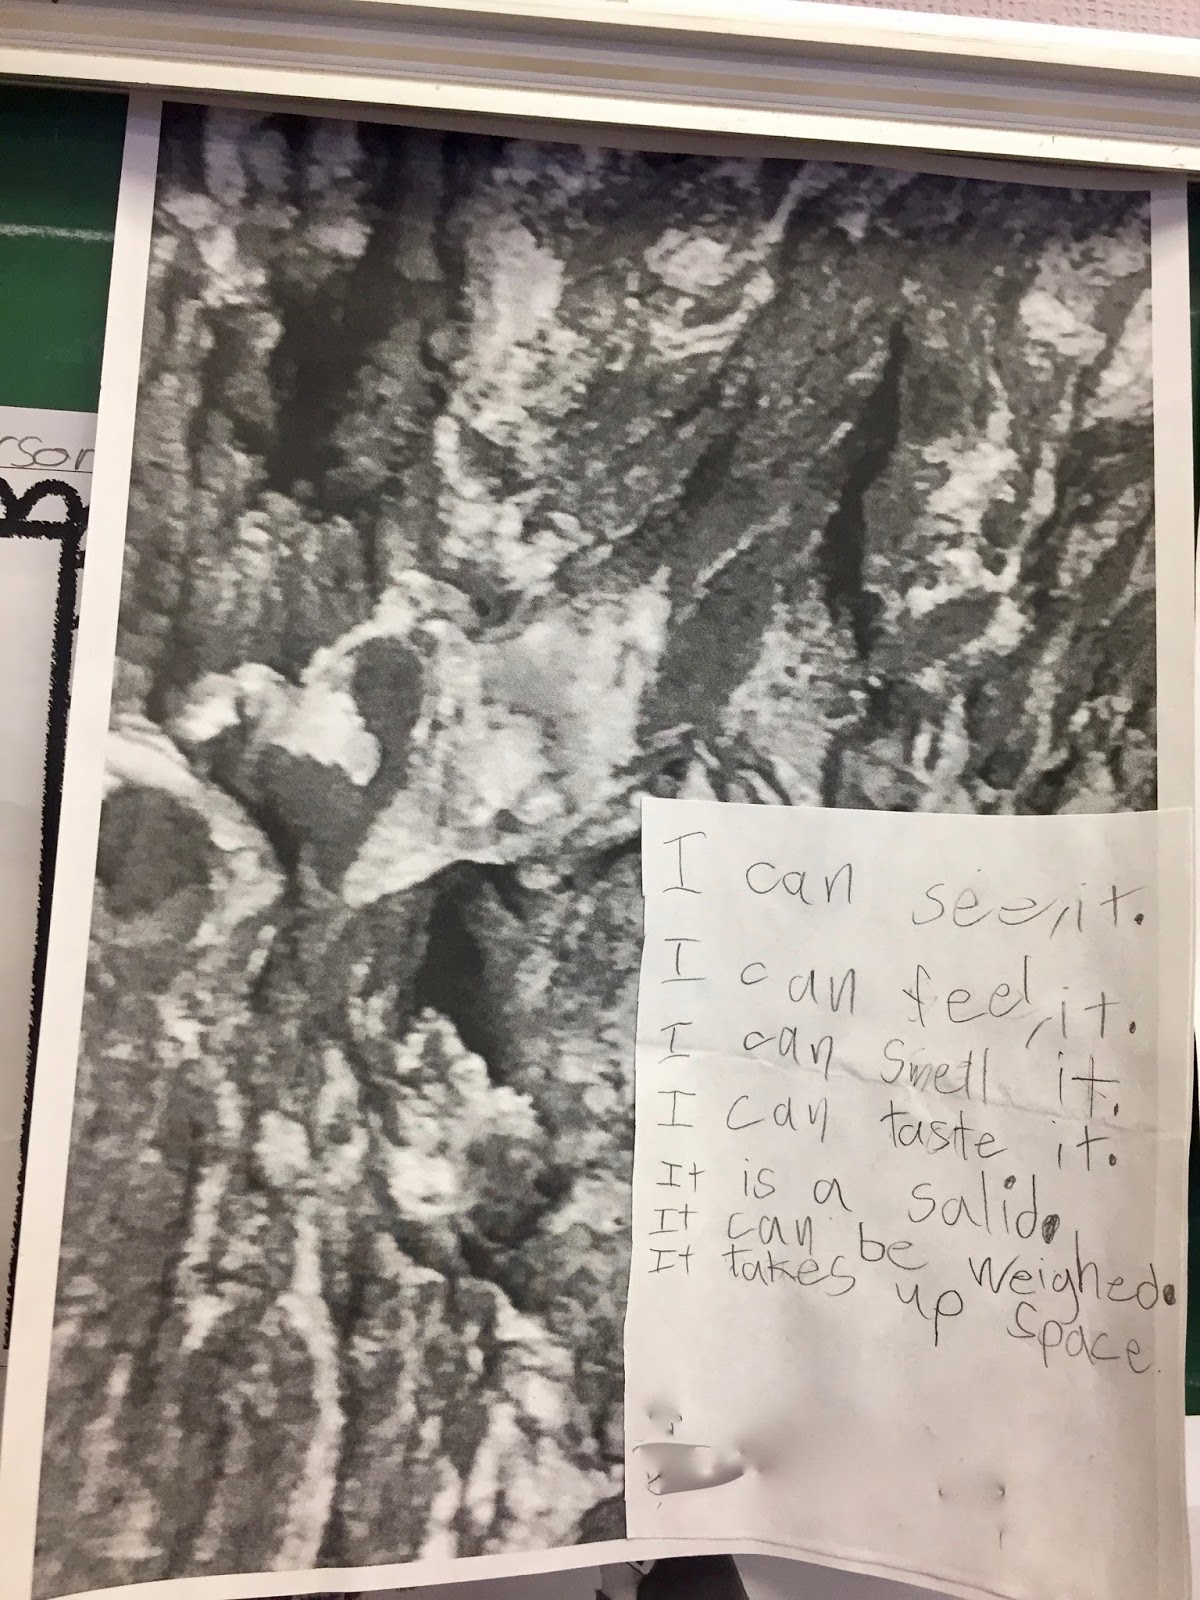 I can see, it.
I can feel, it.
I can smell it.
I can taste it.
It is a salid.
It can be weighed.
It takes up space.